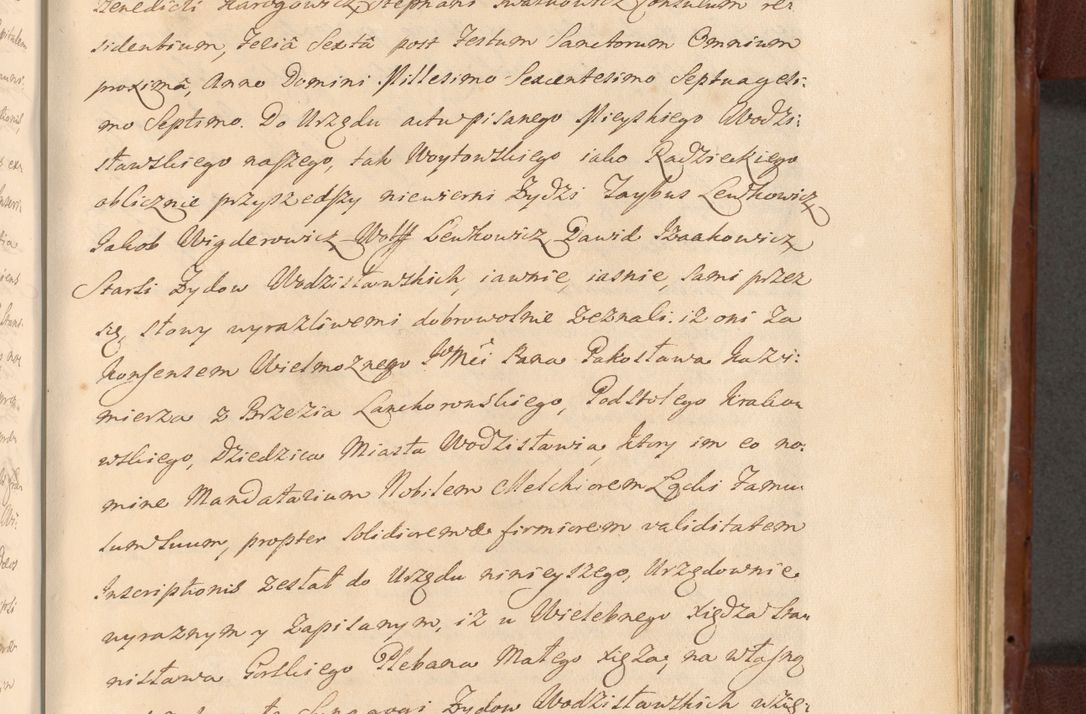 Benedicti Karogowicz, Stephani Consulum re:
sidentium, Feriâ Sextâ post Festum Sanctorum Omnium
proximâ, Anno Domini Millesimo Sexcentesimo Septuagesi:
mo Septimo. Do Urzędu actu pisanego Mieyskiego Wodzi:
sławskiego naszego, tak Woytowskiego iako Radzieckiego
oblicznie przyszedszy niewierni Żydzi Faybus Lewkowicz
Jakob Wigderowicz Wolff Lewkowicz Dawid Izaakowicz
Starsi Żydow Wodzisławskich, iawnie, iasnie, sami przez
się, słowy wyrazliwemi dobrowolnie zeznali: iż oni za
konsensem Wielmożnego JMći Pana Pakosława Kazi:
mierza z Brzezia Lanckoronskiego, Podstolego Krako
wskiego, Dziedzica Miasta Wodzisławia, ktory im eo no:
mine Mandatarium Nobilem Melchiorem Famu
lum suum, propter solidiorem & firmiorem validitatem
Inscriptionis zesłał do Urzędu ninieyszego, Urzędownie
wyraznym y zapisanym, iż u Wielebnego Xiędza Sta
nisława Gorskiego Plebana Małego Xiąza, na własną
Synagogi Żydow Wodzisławskich